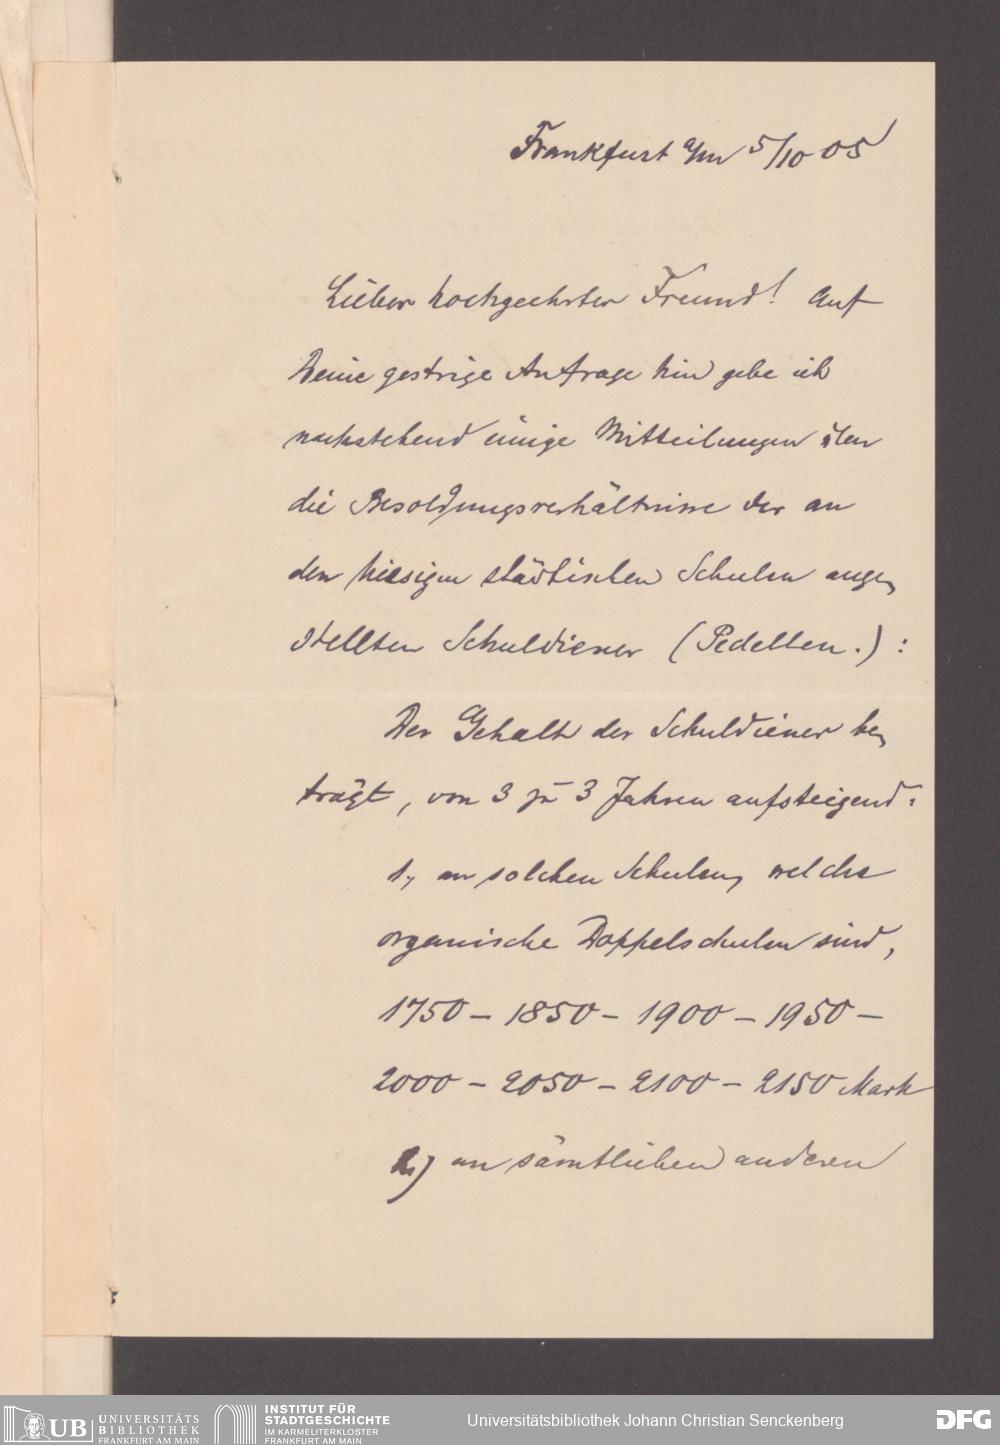 Frankfurt a/m 5/10 05
Lieber hochgeehrter Freund! Auf
Deine gestrige Anfrage hin gebe ich
nachstehend einige Mitteilungen über
die Besoldungsverhältnisse der an
den hiesigen städtischen Schulen ange-
stellten Schuldiener (Pedellen.):
Der Gehalt der Schuldiener be-
trägt, von 3 zu 3 Jahren aufsteigend:
1., an solchen Schulen, welche
organische Doppelschulen sind,
1750 – 1850 – 1900 – 1950 –
2000 – 2050 – 2100 – 2150 Mark
2.) an sämtlichen anderen
UB UNIVERSITÄTS
BIBLIOTHEK
FRANKFURT AM MAIN
INSTITUT FÜR
STADTGESCHICHTE
IM KARMELITERKLOSTER
FRANKFURT AM MAIN
Universitätsbibliothek Johann Christian Senckenberg
DFG